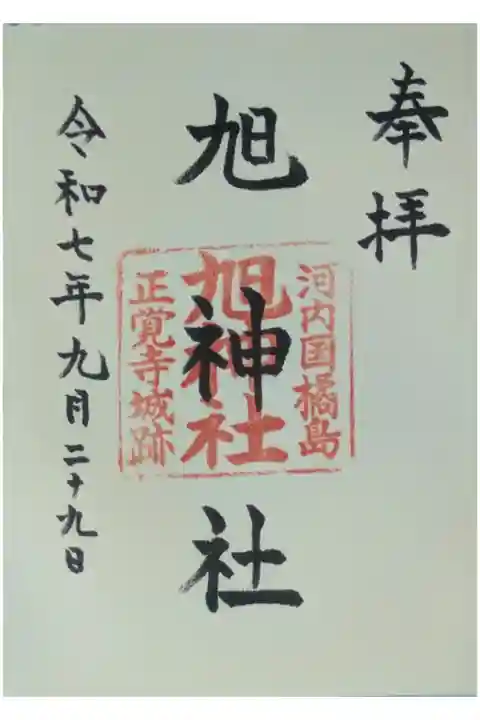 奉拝
河内国橘島
旭神社
正覚寺城跡
旭神社
令和七年九月二十九日